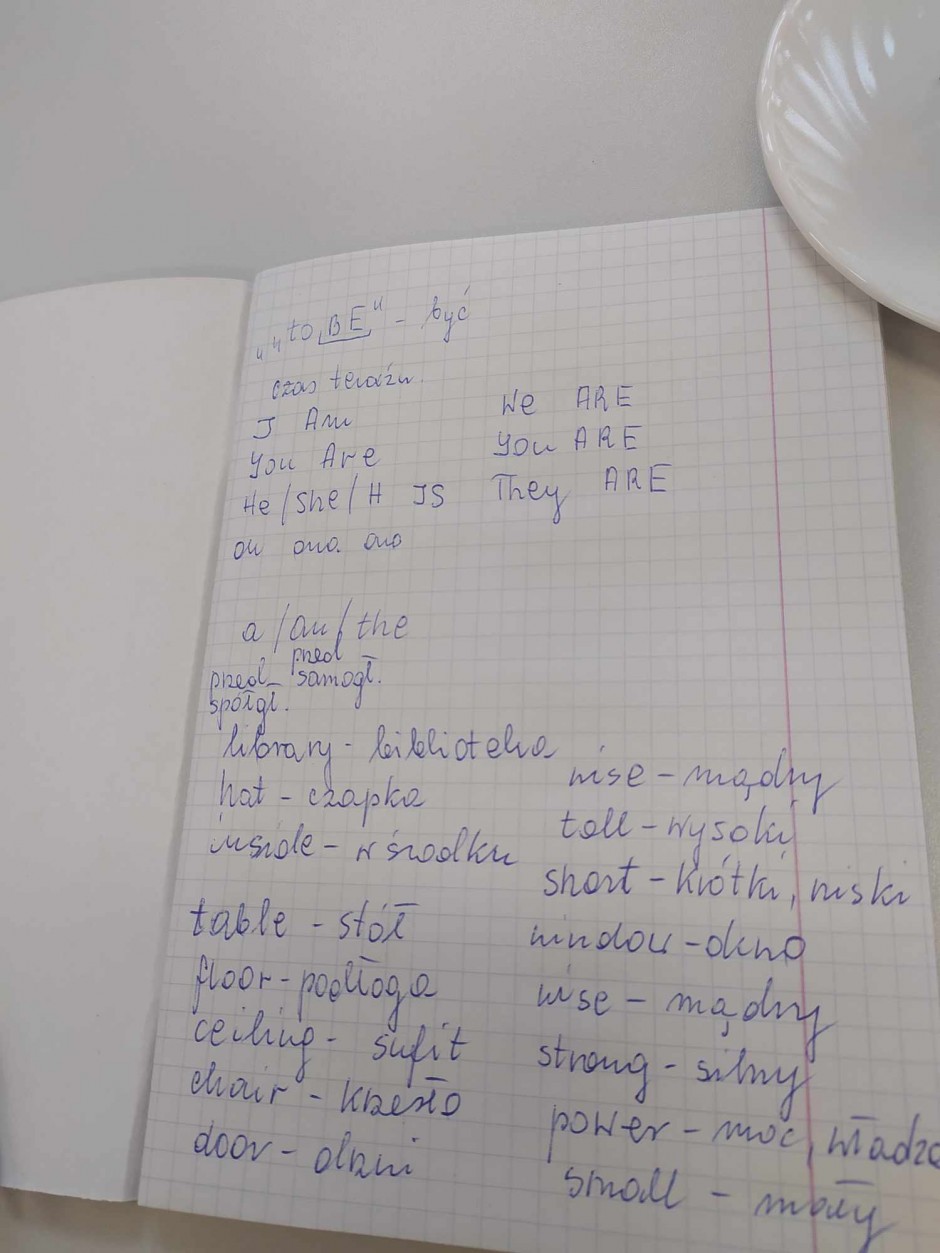 „„to BE" - być
czas teraźn.
I Am
You Are
He/She/It IS
on ona ono
We ARE
You ARE
They ARE
a/an/the
przed spółgł.
przed samogł.
library - biblioteka
hat - czapka
inside - w środku
table - stół
floor - podłoga
ceiling - sufit
chair - krzesło
door - drzwi
wise - mądry
tall - wysoki
short - krótki, niski
window - okno
wise - mądry
strong - silny
power - moc, władza
small - mały